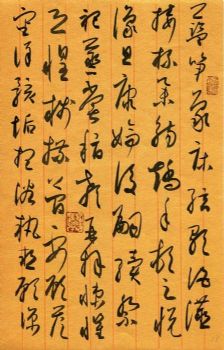 藍筍象床弦歌酒讌
接杯舉觴矯手頓足悅
豫且康嫡後嗣續祭
祀蒸嘗稽顙再拜悚懼
恐惶牋牒簡要顧答
審詳骸垢想浴執熱願涼